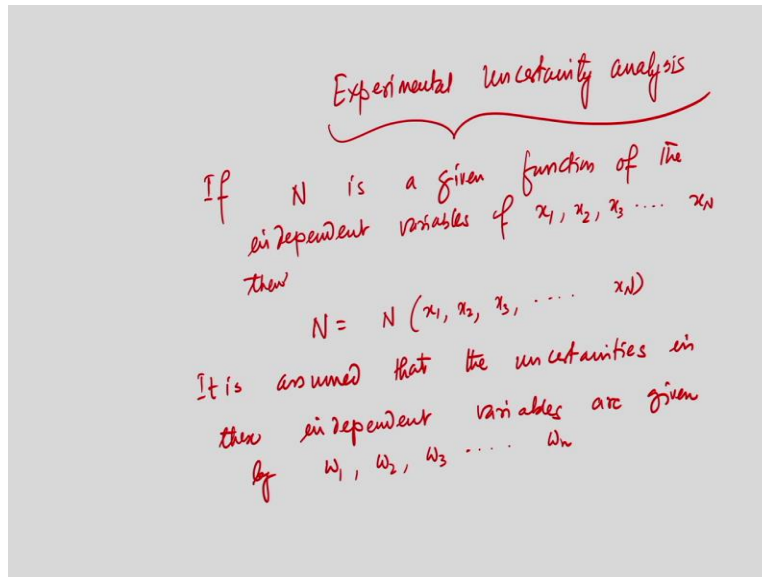 Experimental uncertainity analysis
If N is a given function of the
independent variables of x₁, x₂, x₃ .... x_N
then
N = N (x₁, x₂, x₃, .... x_N)
It is assumed that the uncertainties in
these independent variables are given
by ω₁, ω₂, ω₃ .... ωₙ